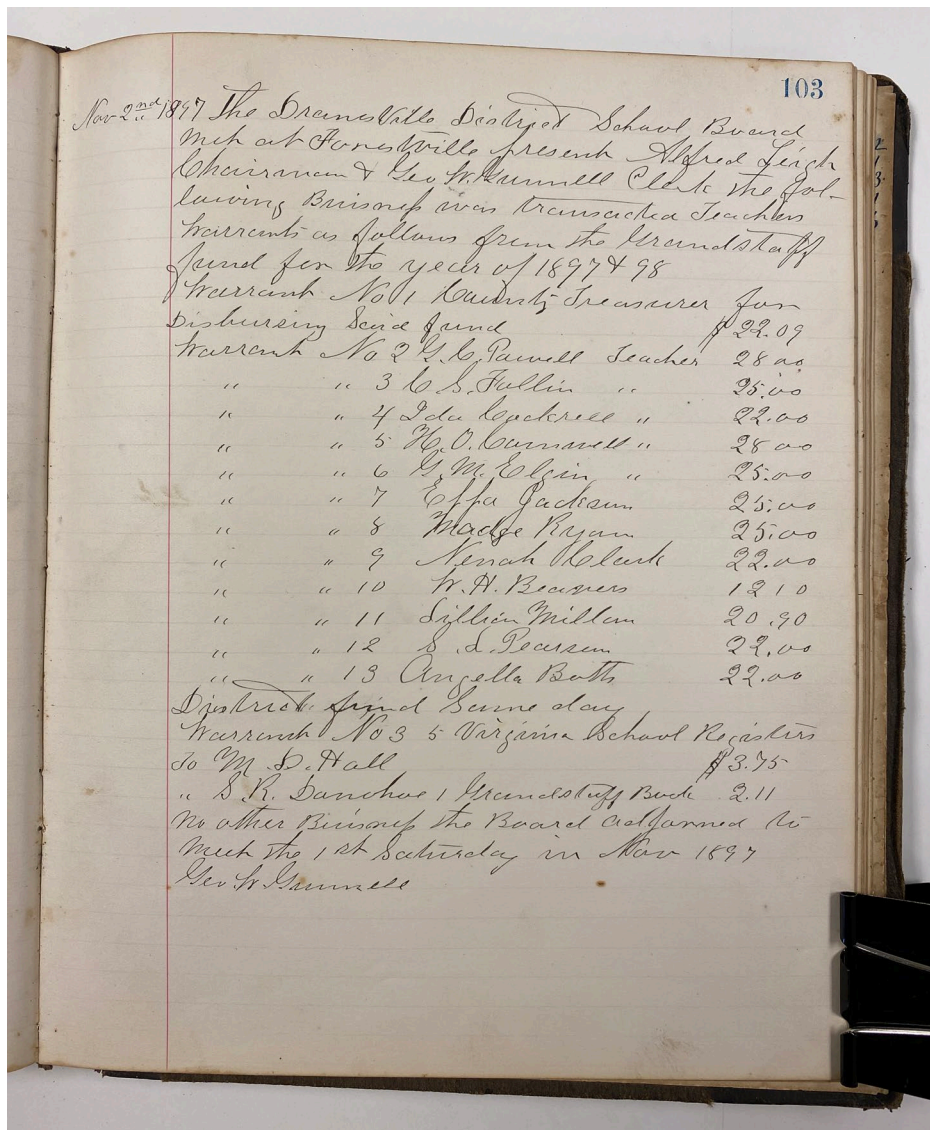 103
Nov 2nd 1897 The Dranesville District School Board
met at Forestville present Alfred Leigh
Chairman & Geo W. Gunnell Clerk the fol-
lowing Buisness was transacted Teachers
Warrants as follows from the Grandstaff
fund for the year of 1897 & 98
Warrant No 1 County Treasurer for
Disbursing Said fund $ 22.09
Warrant No 2 G. C. Powell Teacher 28 00
" " 3 C S. Follin " 25.00
" " 4 Ida Cockrell " 22.00
" " 5 H. O. Cornwell " 28 00
" " 6 G. M. Elgin " 25.00
" " 7 Effa Jackson 25.00
" " 8 Madge Ryon 25.00
" " 9 Nenah Clark 22.00
" " 10 W. H. Beavers 12 10
" " 11 Lillian Millan 20.90
" " 12 S. L. Pearson 22.00
" " 13 Angella Botts 22.00
District fund Same day
Warrant No 3 5 Virginia School Registers
To M. D. Hall $ 3.75
" S. R. Donohoe 1 Grandstaff Book 2.11
no other Buisness the Board adjorned to
meet the 1st Saturday in Nov 1897
Geo W Gunnell